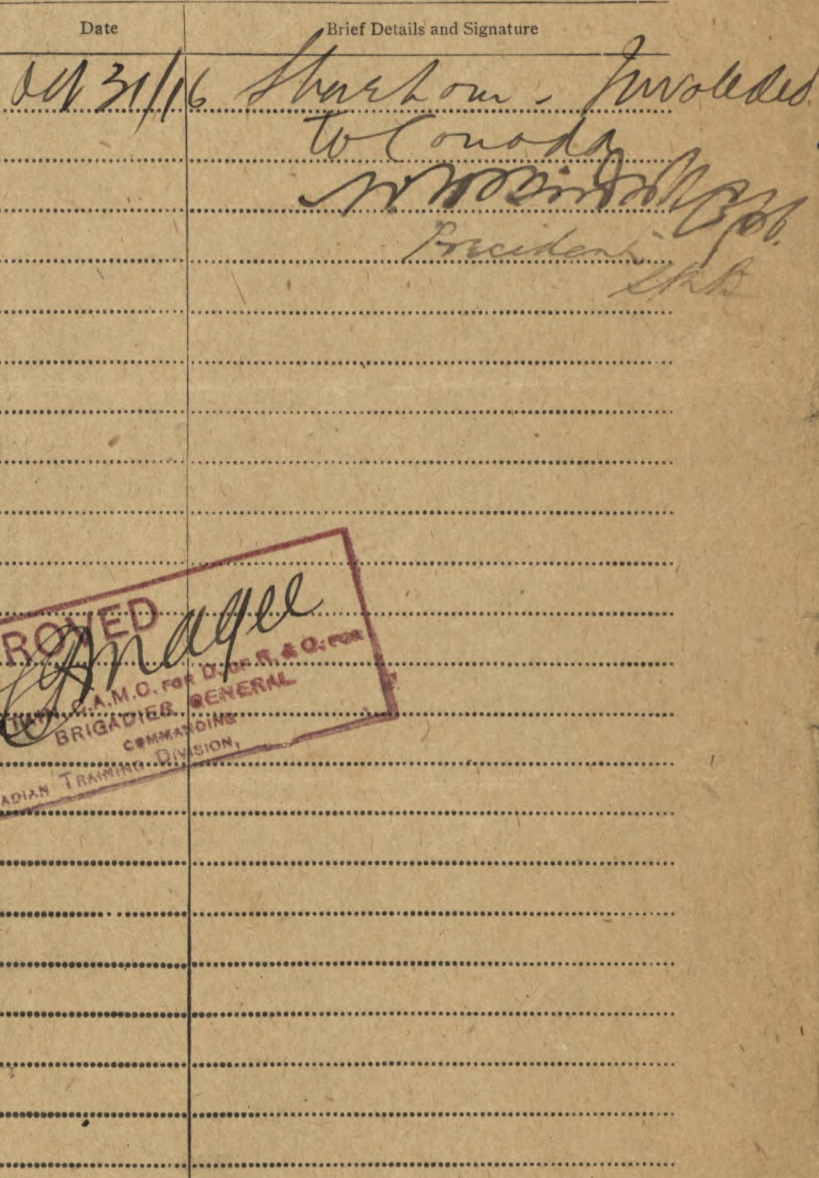 Date Brief Details and Signature
Oct 31/16 Invalided
to Canada
Capt.
President
ROVED
Magee
C.A.M.C. FOR D. OF R. & O. FOR
BRIGADIER GENERAL
COMMANDING
ADIAN TRAINING DIVISION,